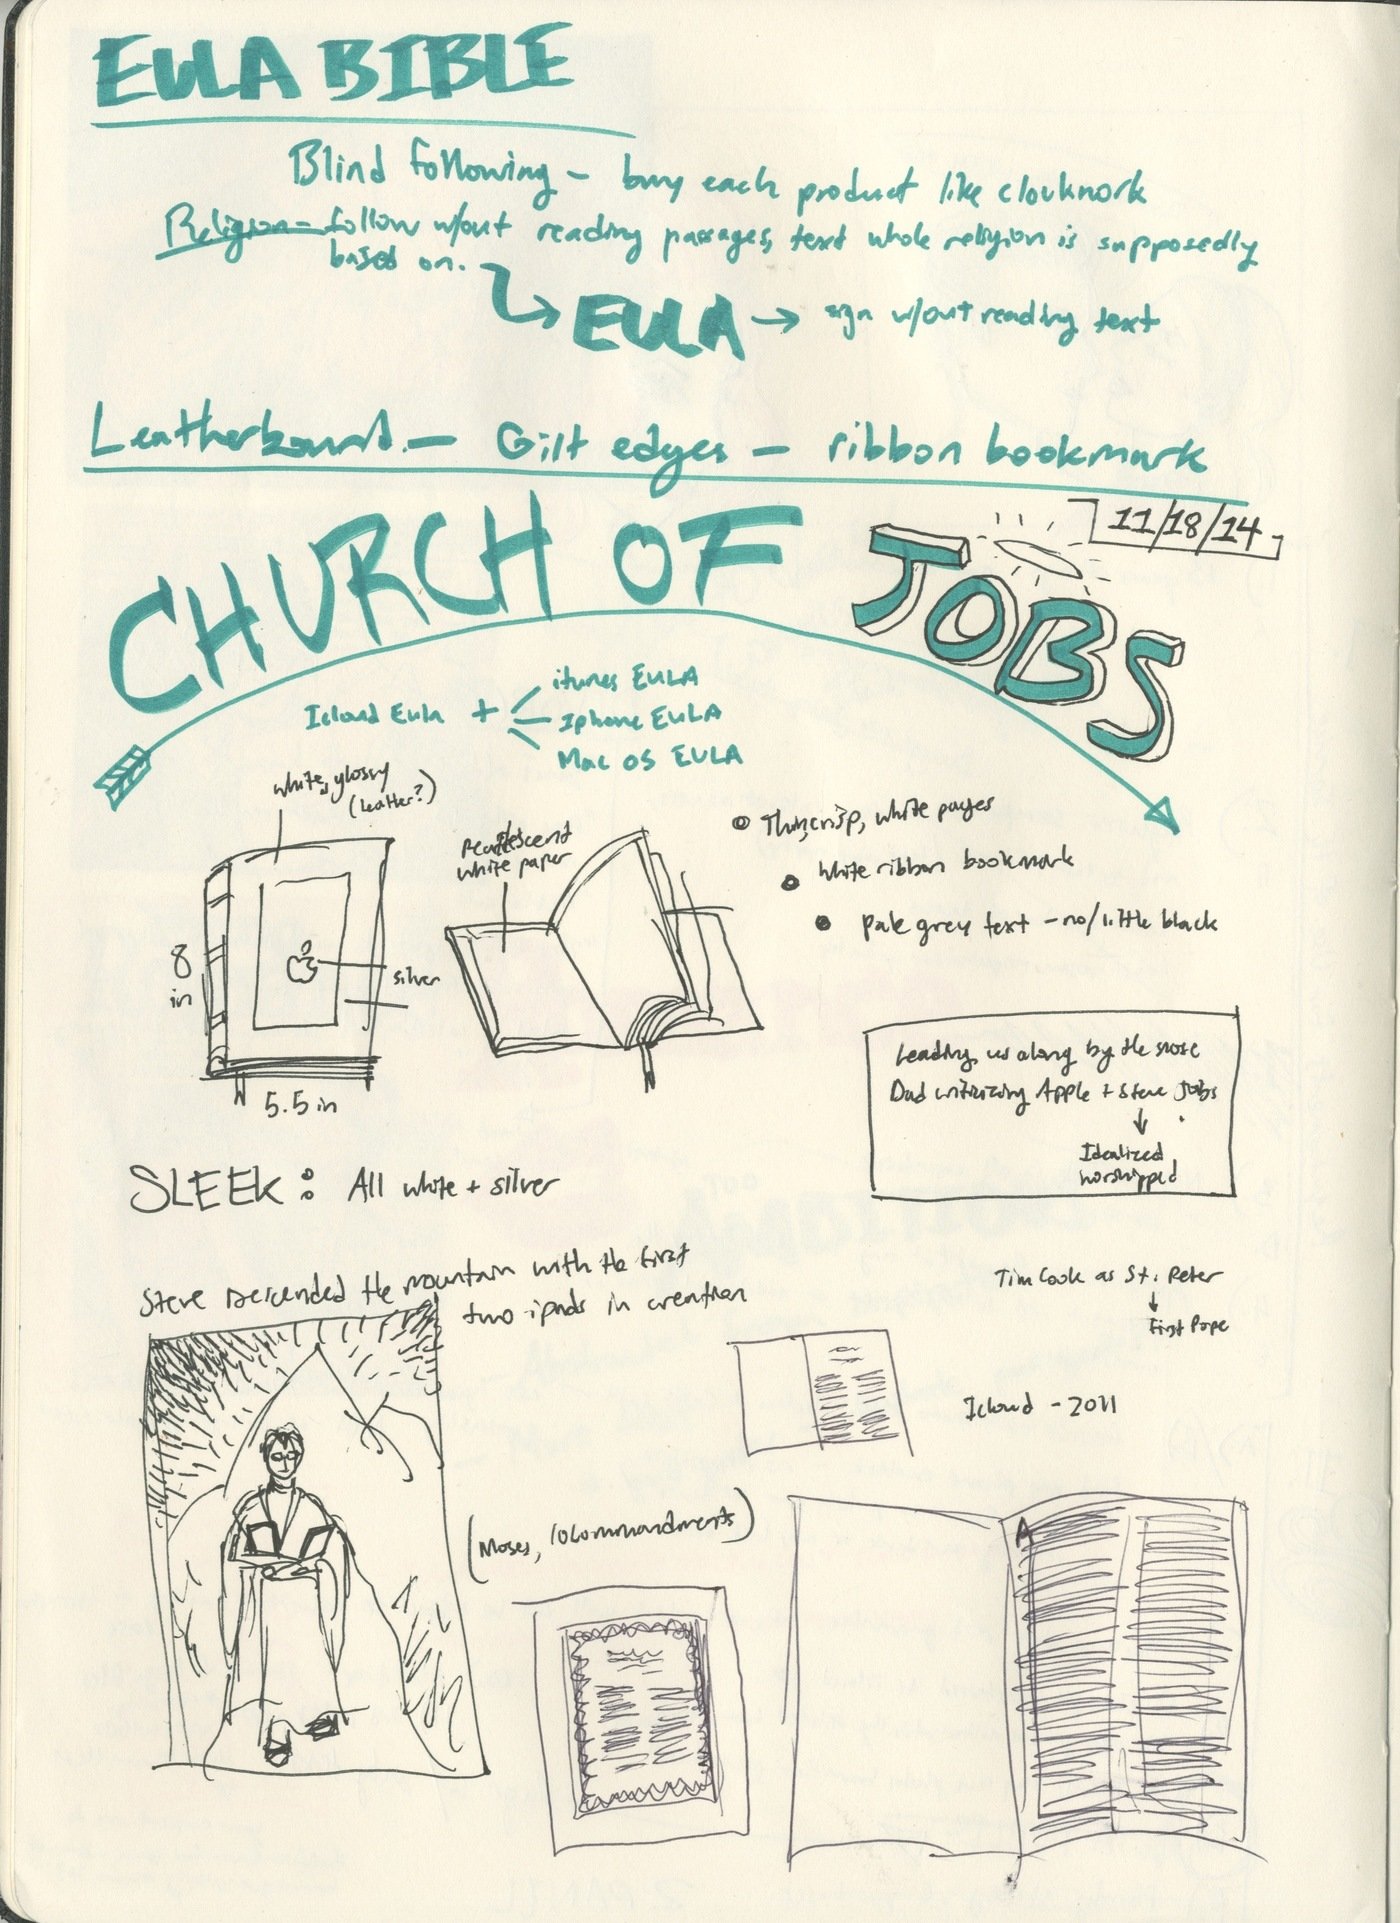 EULA BIBLE
Blind following – buy each product like clockwork
Religion – follow w/out reading passages, text whole religion is supposedly
based on.
EULA → sign w/out reading text
Leatherbound – Gilt edges – ribbon bookmark
CHURCH OF JOBS
11/18/14
Icloud Eula +
itunes EULA
Iphone EULA
Mac OS EULA
white, glossy
(leather?)
8
in
silver
5.5 in
white paper
Thin, crisp, white pages
White ribbon bookmark
pale grey text – no/little black
Leading us along by the nose
Dad critizing Apple + Steve Jobs
↓
Idealized
worshipped
SLEEK: All white + silver
Steve descended the mountain with the first
two ipads in creation
Tim Cook as St. Peter
↓
First Pope
Icloud – 2011
(Moses, 10 Commandments)
A